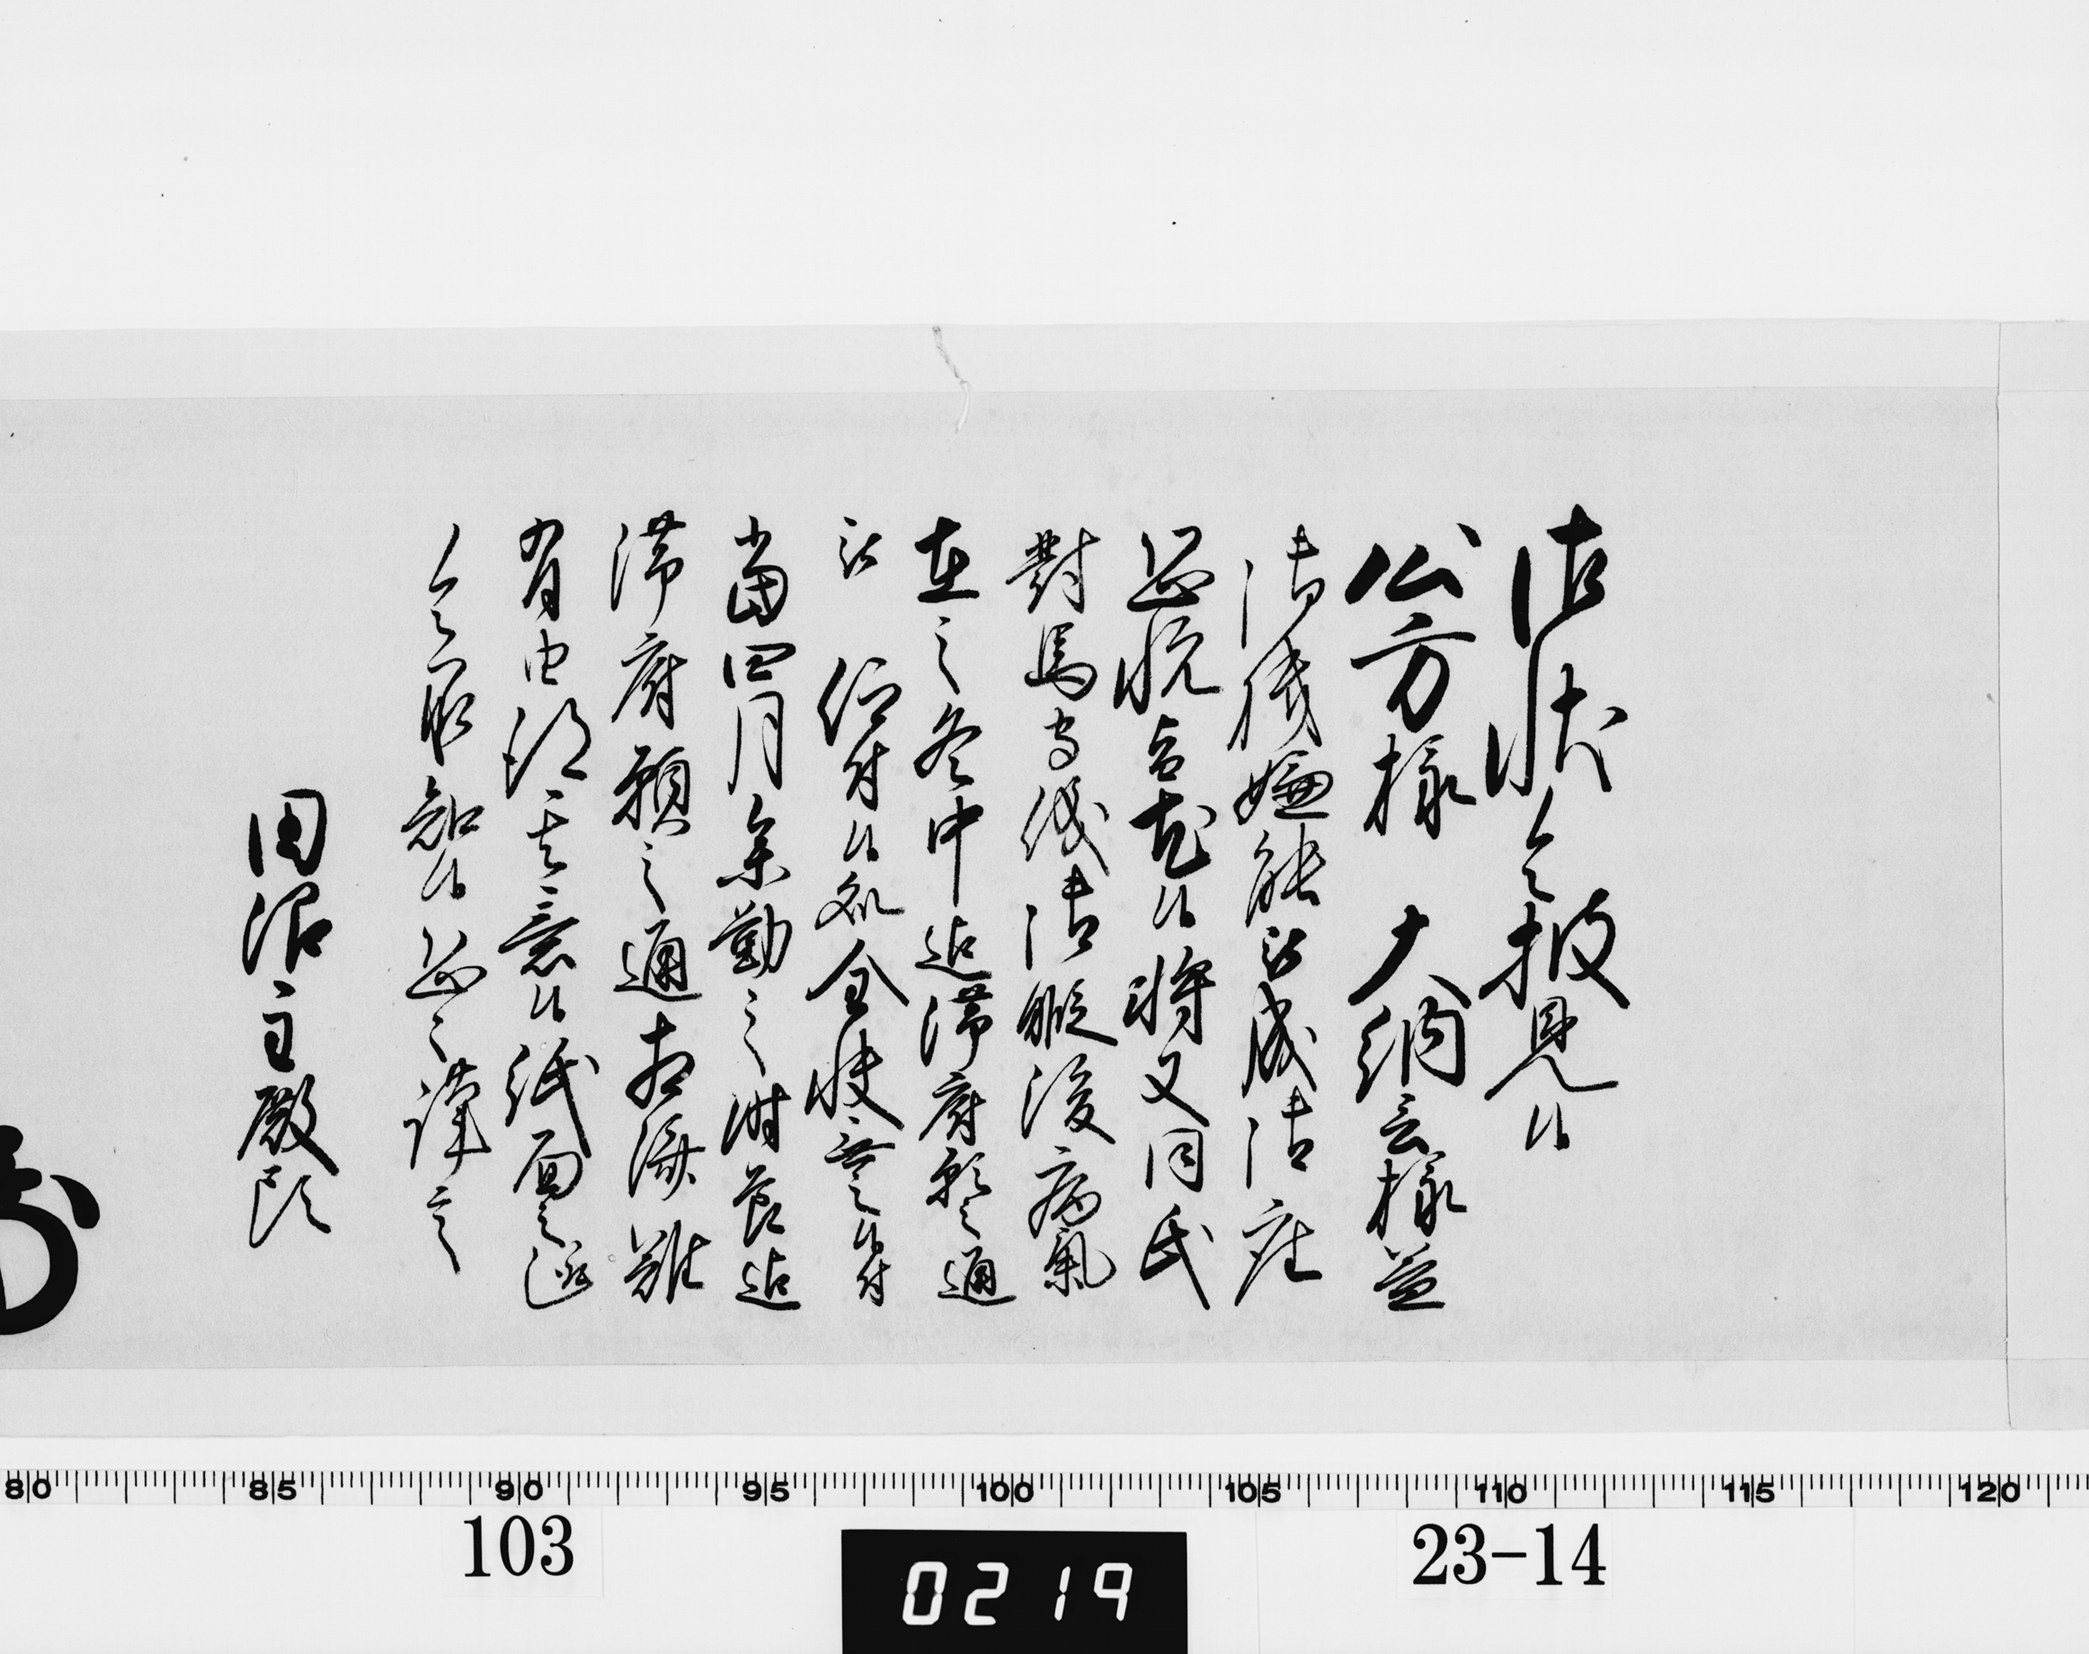 御状令披見候
公方様 大納言様益
御機嫌能被成御座
恐悦旨尤候将又同氏
對馬守儀御暇後病氣
在之冬中迄滞府願之通
被 仰付候処全快無之候付
當四月参勤之時節迄
滞府願之通相済難
有由得其意候紙面之趣
令承知候恐々謹言
田沼主殿頭
80 85 90 95 100 105 110 115 120
103
0219
23-14